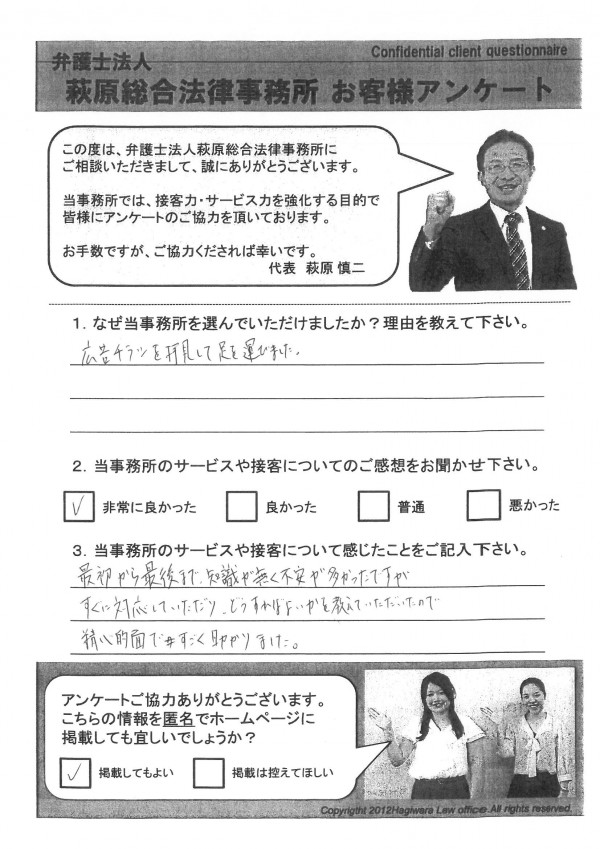 Confidential client questionnaire
弁護士法人
萩原総合法律事務所 お客様アンケート
この度は、弁護士法人萩原総合法律事務所に
ご相談いただきまして、誠にありがとうございます。
当事務所では、接客力・サービス力を強化する目的で
皆様にアンケートのご協力を頂いております。
お手数ですが、ご協力くだされば幸いです。
代表 萩原 慎二
1. なぜ当事務所を選んでいただけましたか？理由を教えて下さい。
広告チラシを拝見して足を運びました。
2. 当事務所のサービスや接客についてのご感想をお聞かせ下さい。
✓ 非常に良かった 良かった 普通 悪かった
3. 当事務所のサービスや接客について感じたことをご記入下さい。
最初から最後まで、知識が無く不安が多かったですが
すぐに対応していただだり、どうすればよいかを教えていただいたので
精心的面でもすごく助かりました。
アンケートご協力ありがとうございます。
こちらの情報を匿名でホームページに
掲載しても宜しいでしょうか？
✓ 掲載してもよい 掲載は控えてほしい
Copyright 2012Hagiwara Law officer.All rights reserved.